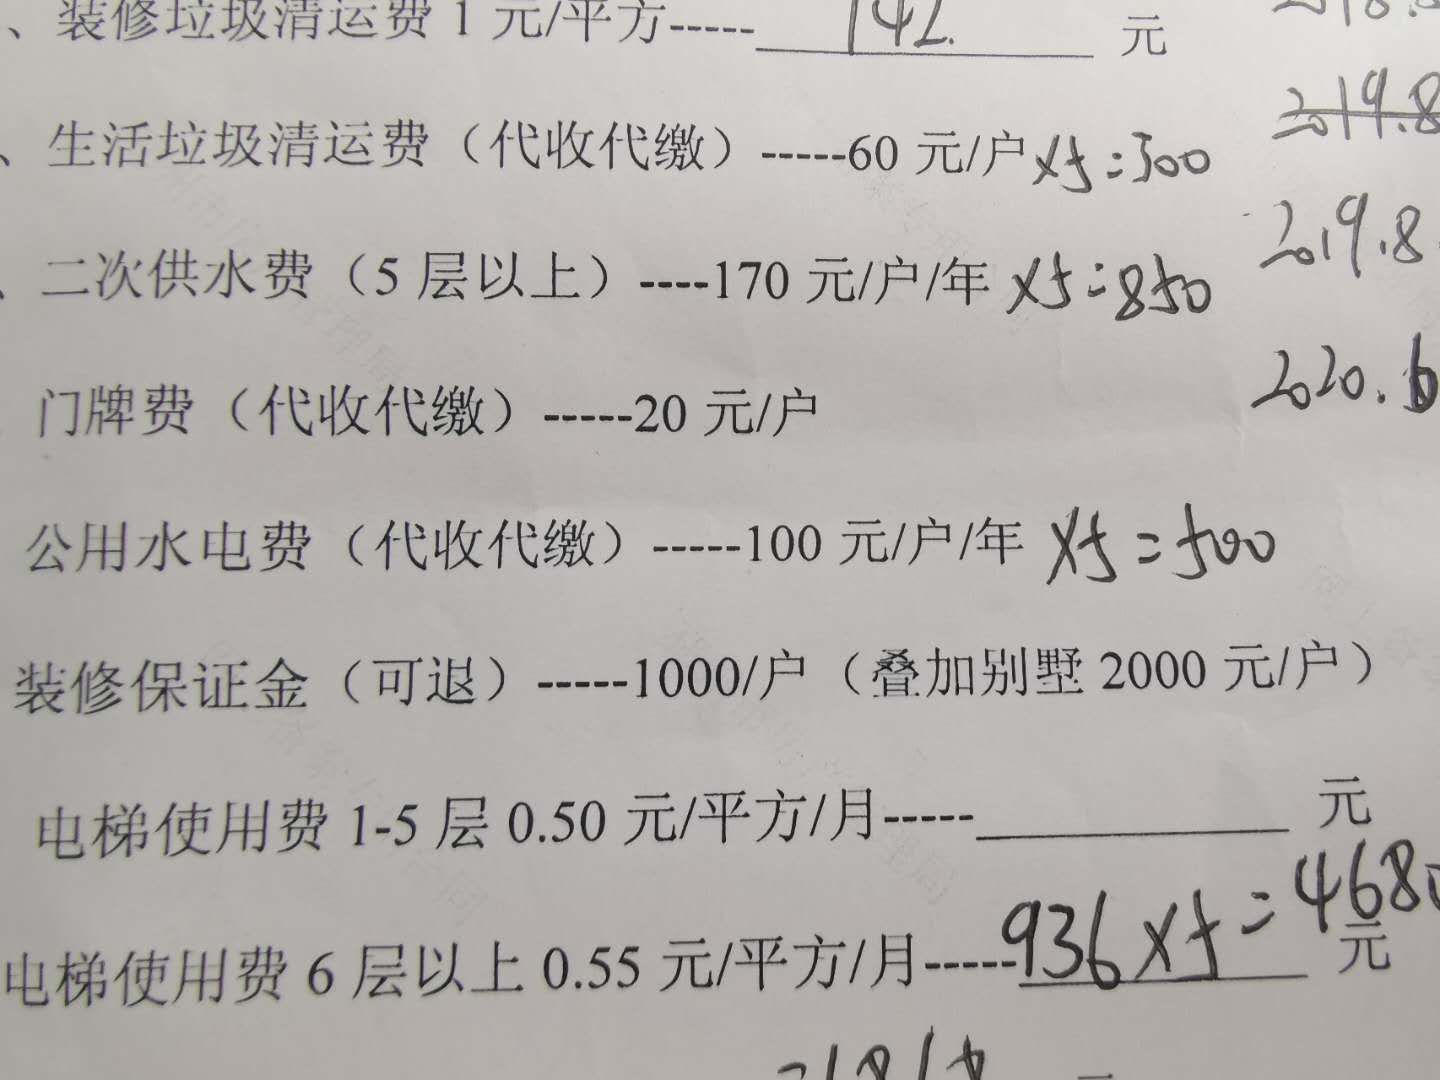 、装修垃圾清运费 1 元/平方-----142. 元
、生活垃圾清运费（代收代缴）-----60 元/户 x5=300
2019.8
、二次供水费（5 层以上）----170 元/户/年 x5=850
2019.8
门牌费（代收代缴）-----20 元/户
2020.6
公用水电费（代收代缴）-----100 元/户/年 x5=500
装修保证金（可退）-----1000/户（叠加别墅 2000 元/户）
电梯使用费 1-5 层 0.50 元/平方/月-----__________ 元
电梯使用费 6 层以上 0.55 元/平方/月-----936x5=4680 元